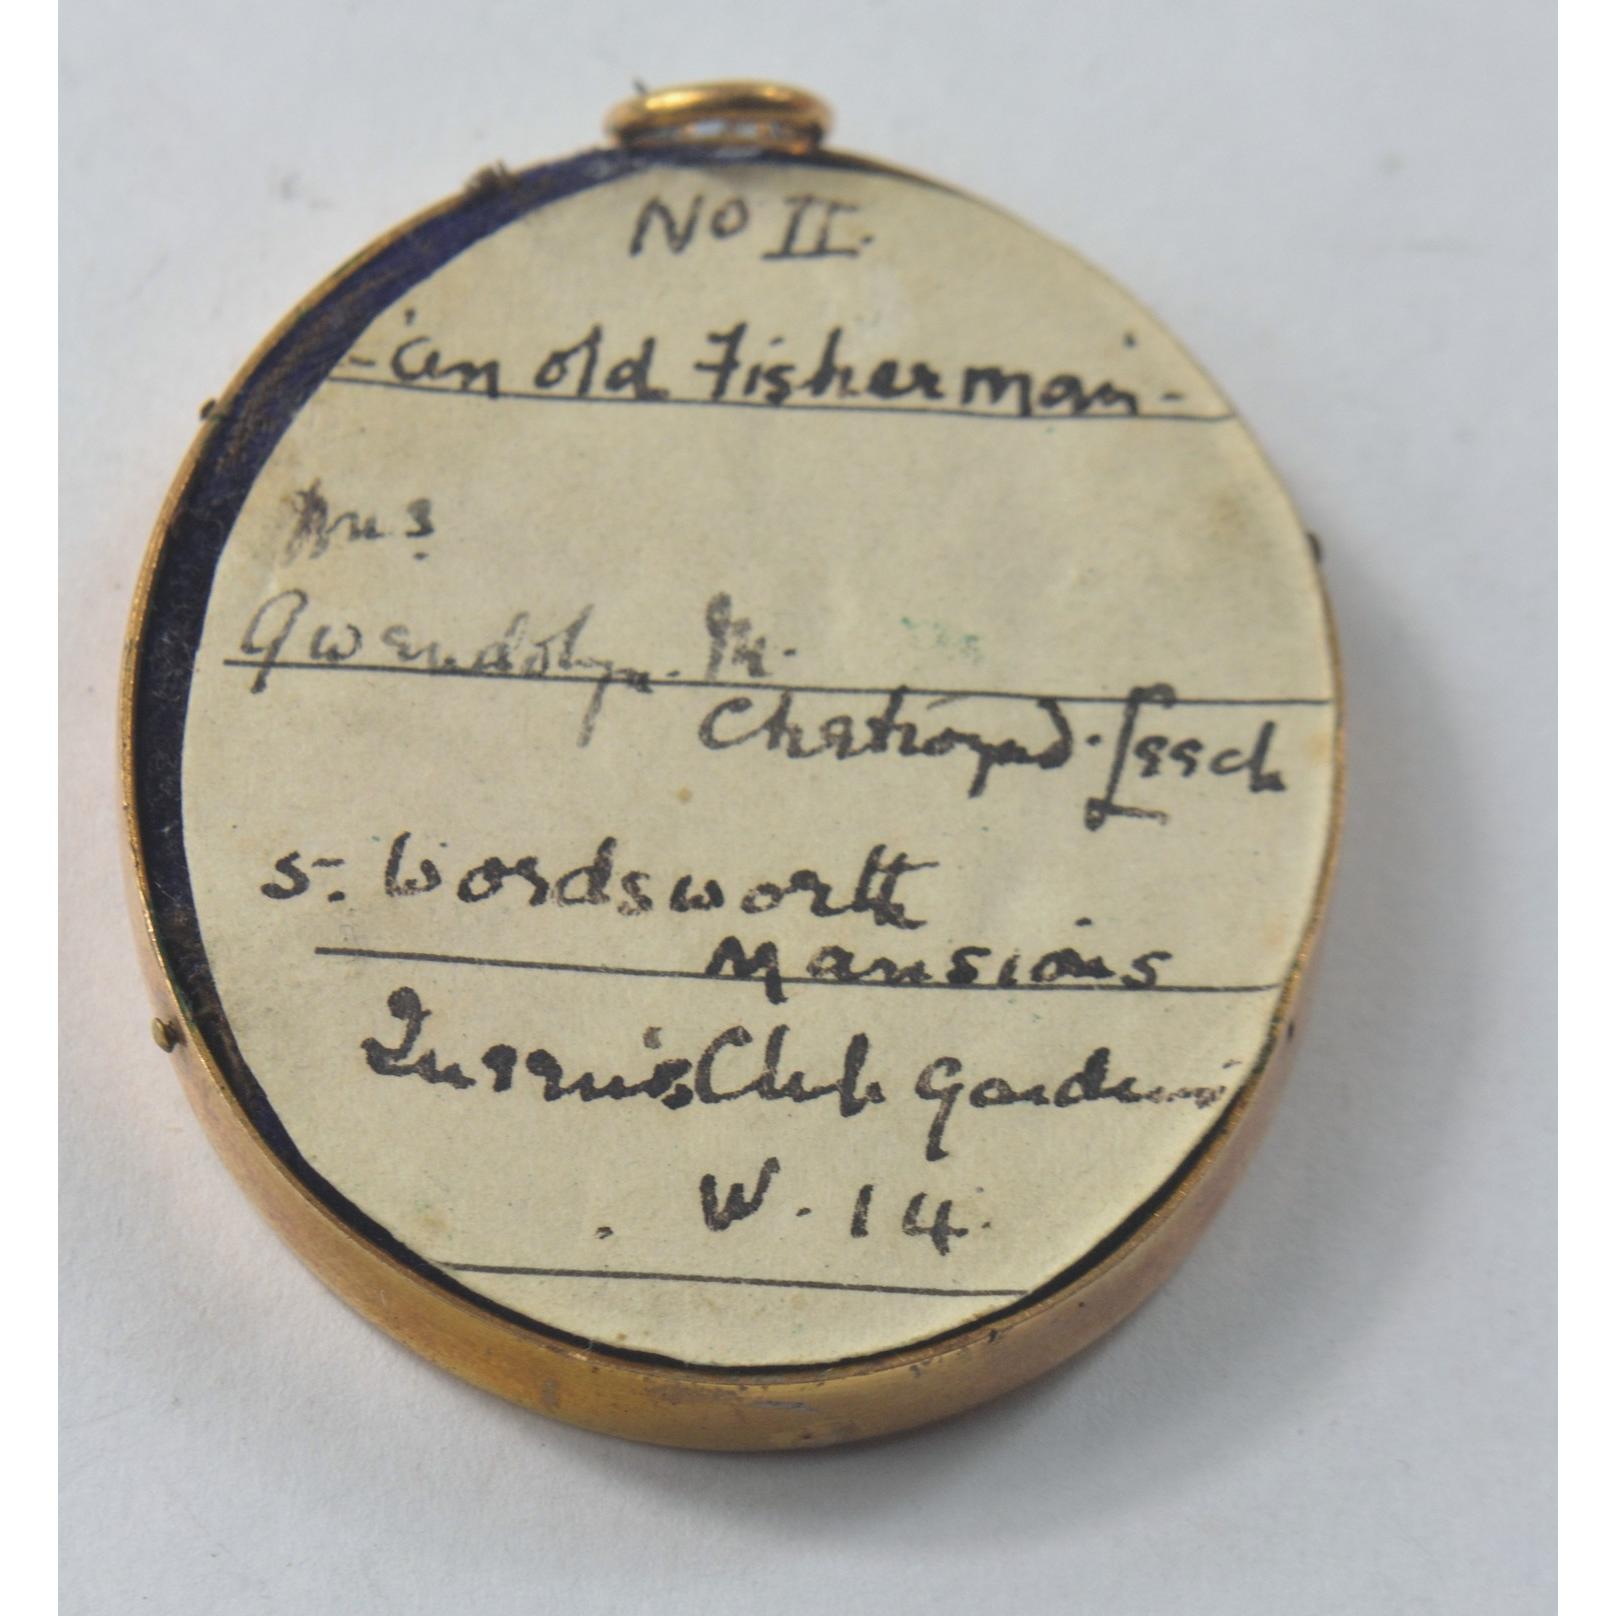 No II.
- an old Fisherman -
Mrs
Gwendolyn. M.
Leech
5. Wordsworth
Mansions
Queen's Club Gardens
W. 14.